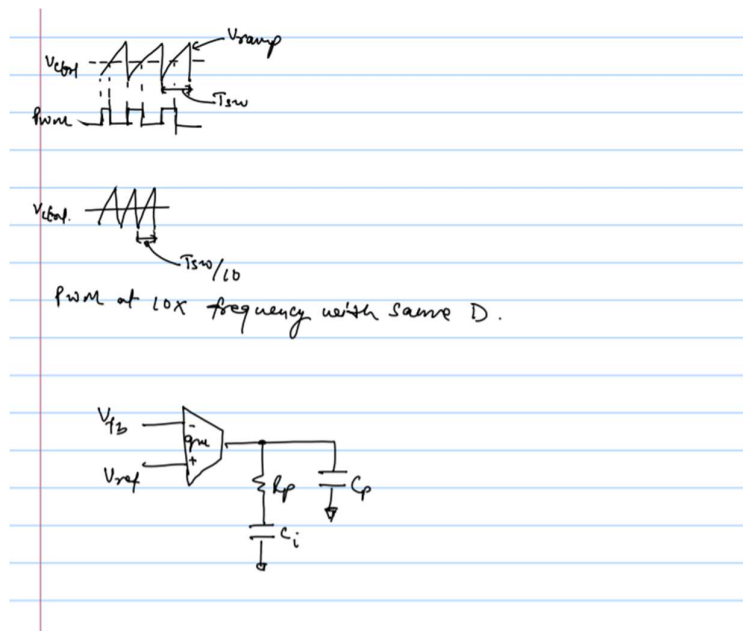 Vramp
Vctrl
Tsw
PWM
Vctrl.
Tsw/10
PWM at 10x frequency with same D.
Vfb
-
gm
+
Vref
Rp
Cp
Ci